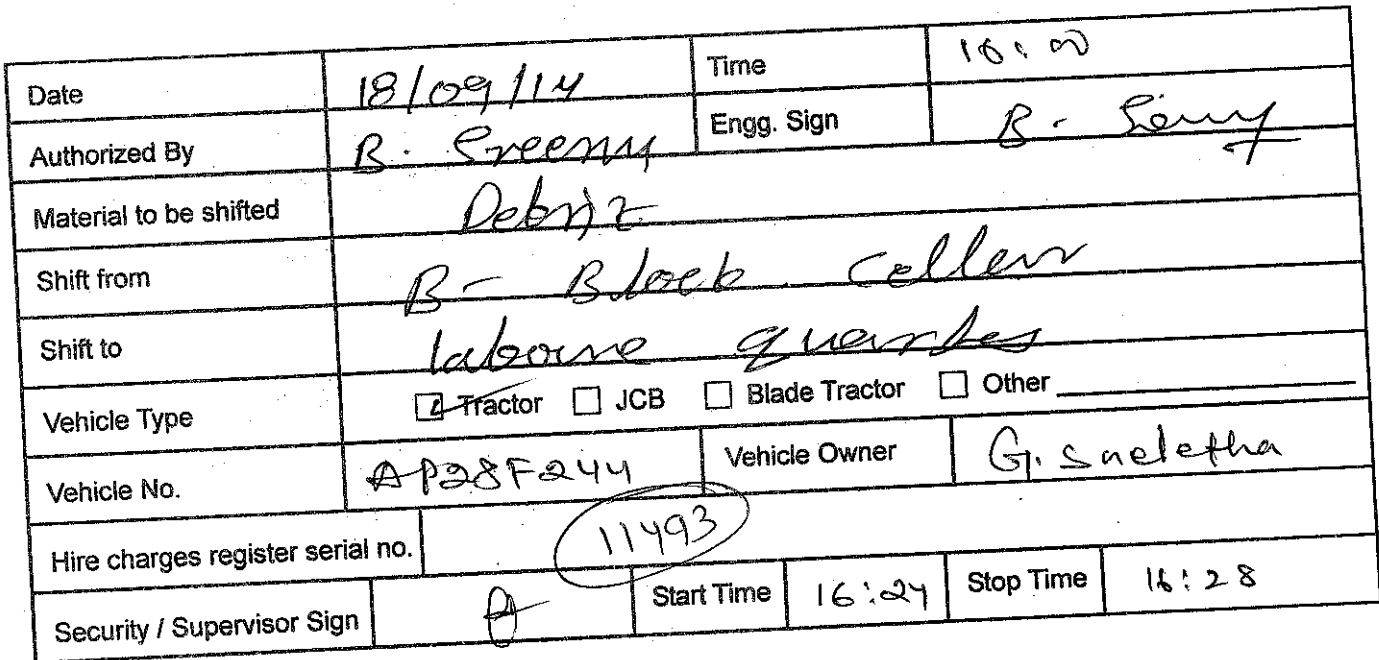 Date 18/09/14 Time 16:00
Authorized By B. Sreenu Engg. Sign B.
Material to be shifted Debriz
Shift from B- Block Celler
Shift to laboure quartes
Vehicle Type Tractor JCB Blade Tractor Other
Vehicle No. AP28F244 Vehicle Owner G. Sneletha
Hire charges register serial no. 11493
Security / Supervisor Sign Start Time 16:24 Stop Time 16:28